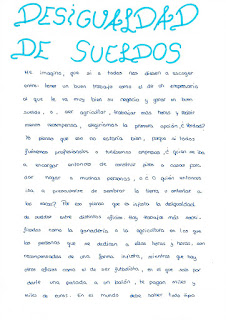 DESIGUALDAD
DE SUELDOS
Me imagino, que si a todos nos dieran a escoger
entre: tener un buen trabajo como el de un empresario
al que le va muy bien su negocio y ganar un buen
sueldo, o, ser agricultor, trabajar más horas y recibir
menos recompensa, elegiríamos la primera opción, ¿Verdad?
Yo pienso que eso no estaría bien, porque si todos
fuéramos profesionales o tuviésemos empresas ¿quién se iba
a encargar entonces de construir pisos o casas para
dar hogar a muchas personas, o ¿O quién entonces
iba a preocuparse de sembrar la tierra o ordeñar a
las vacas? Por eso pienso que es injusta la desigualdad
de sueldos entre distintos oficios. Hay trabajos más
como la ganadería o la agricultura en los que
las personas que se dedican a ellos horas y horas, son
recompensadas de una forma injusta, mientras que hay
otros oficios como el de ser futbolista, en el que solo por
darle una patada a un balón, te pagan miles y
miles de euros. En el mundo debe haber todo tipo